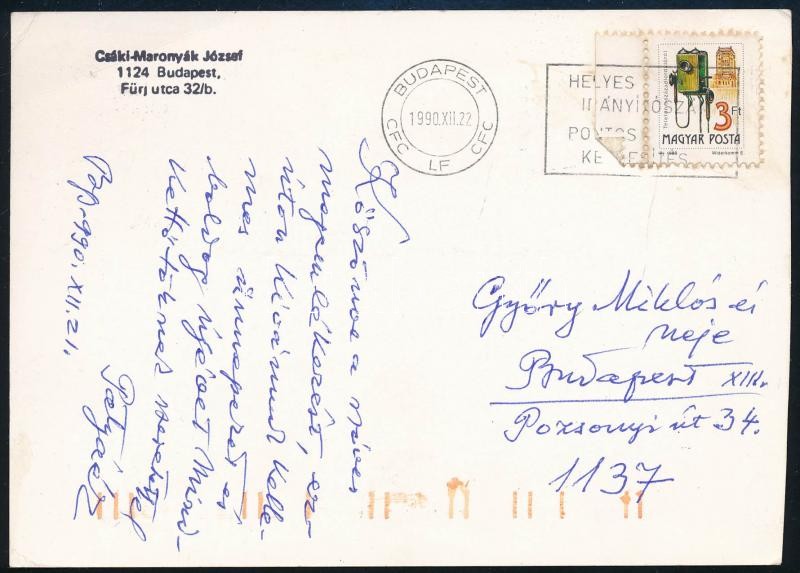 Csáki-Maronyák József
1124 Budapest,
Fürj utca 32/b.
BUDAPEST
1990.XII.22
CFC LF CFC
HELYES
IRÁNYÍTÓSZÁ
PONTOS
KÉZBESÍTÉS
3 Ft
MAGYAR POSTA
Köszönve a szíves
megemlékezést, ez-
úton kívánunk kelle-
mes ünnepeket és
boldog újévet Mind-
kettőtöknek szeretettel
Bp. 990. XII. 21.
Győry Miklós és
neje
Budapest XIII.
Pozsonyi út 34.
1137